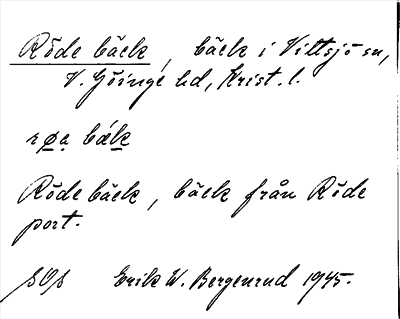 Röde bäck, bäck i Vittsjö sn,
V. Göinge hd, Krist. l.
røa bæk
Röde bäck, bäck från Röde
port.
SOS Erik W. Bergenrud 1945.